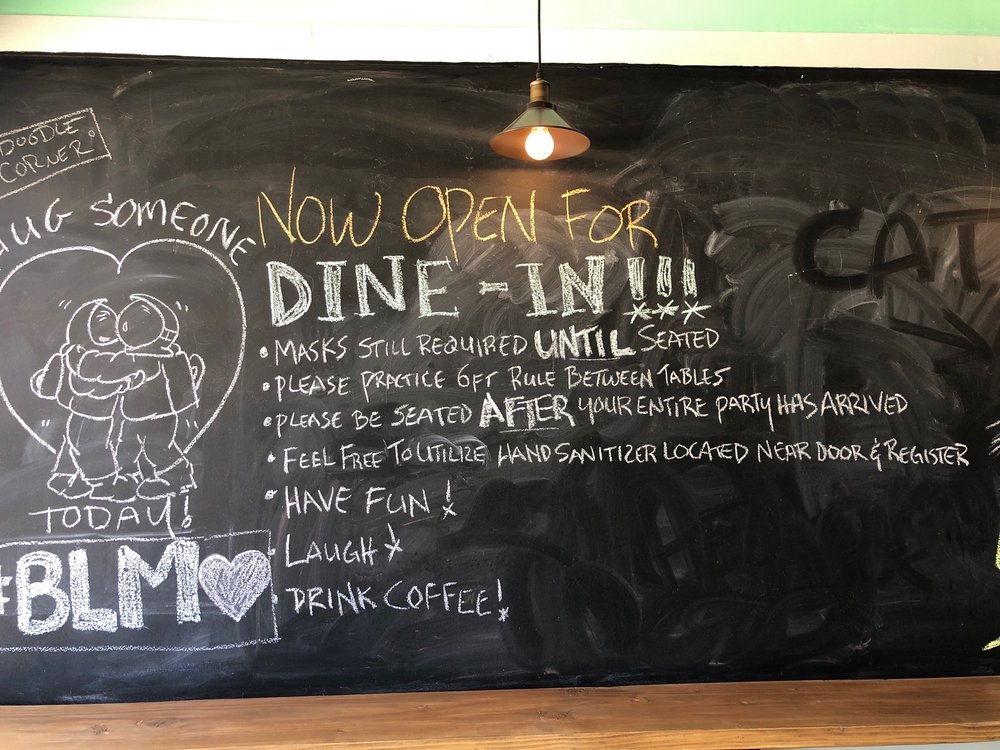 DOODLE
CORNER!
HUG SOMEONE
TODAY!
#BLM
NOW OPEN FOR
DINE-IN!!!
• MASKS STILL REQUIRED UNTIL SEATED
• PLEASE PRACTICE 6FT RULE BETWEEN TABLES
• PLEASE BE SEATED AFTER YOUR ENTIRE PARTY HAS ARRIVED
• FEEL FREE TO UTILIZE HAND SANITIZER LOCATED NEAR DOOR & REGISTER
• HAVE FUN!
• LAUGH!
• DRINK COFFEE!
CAT